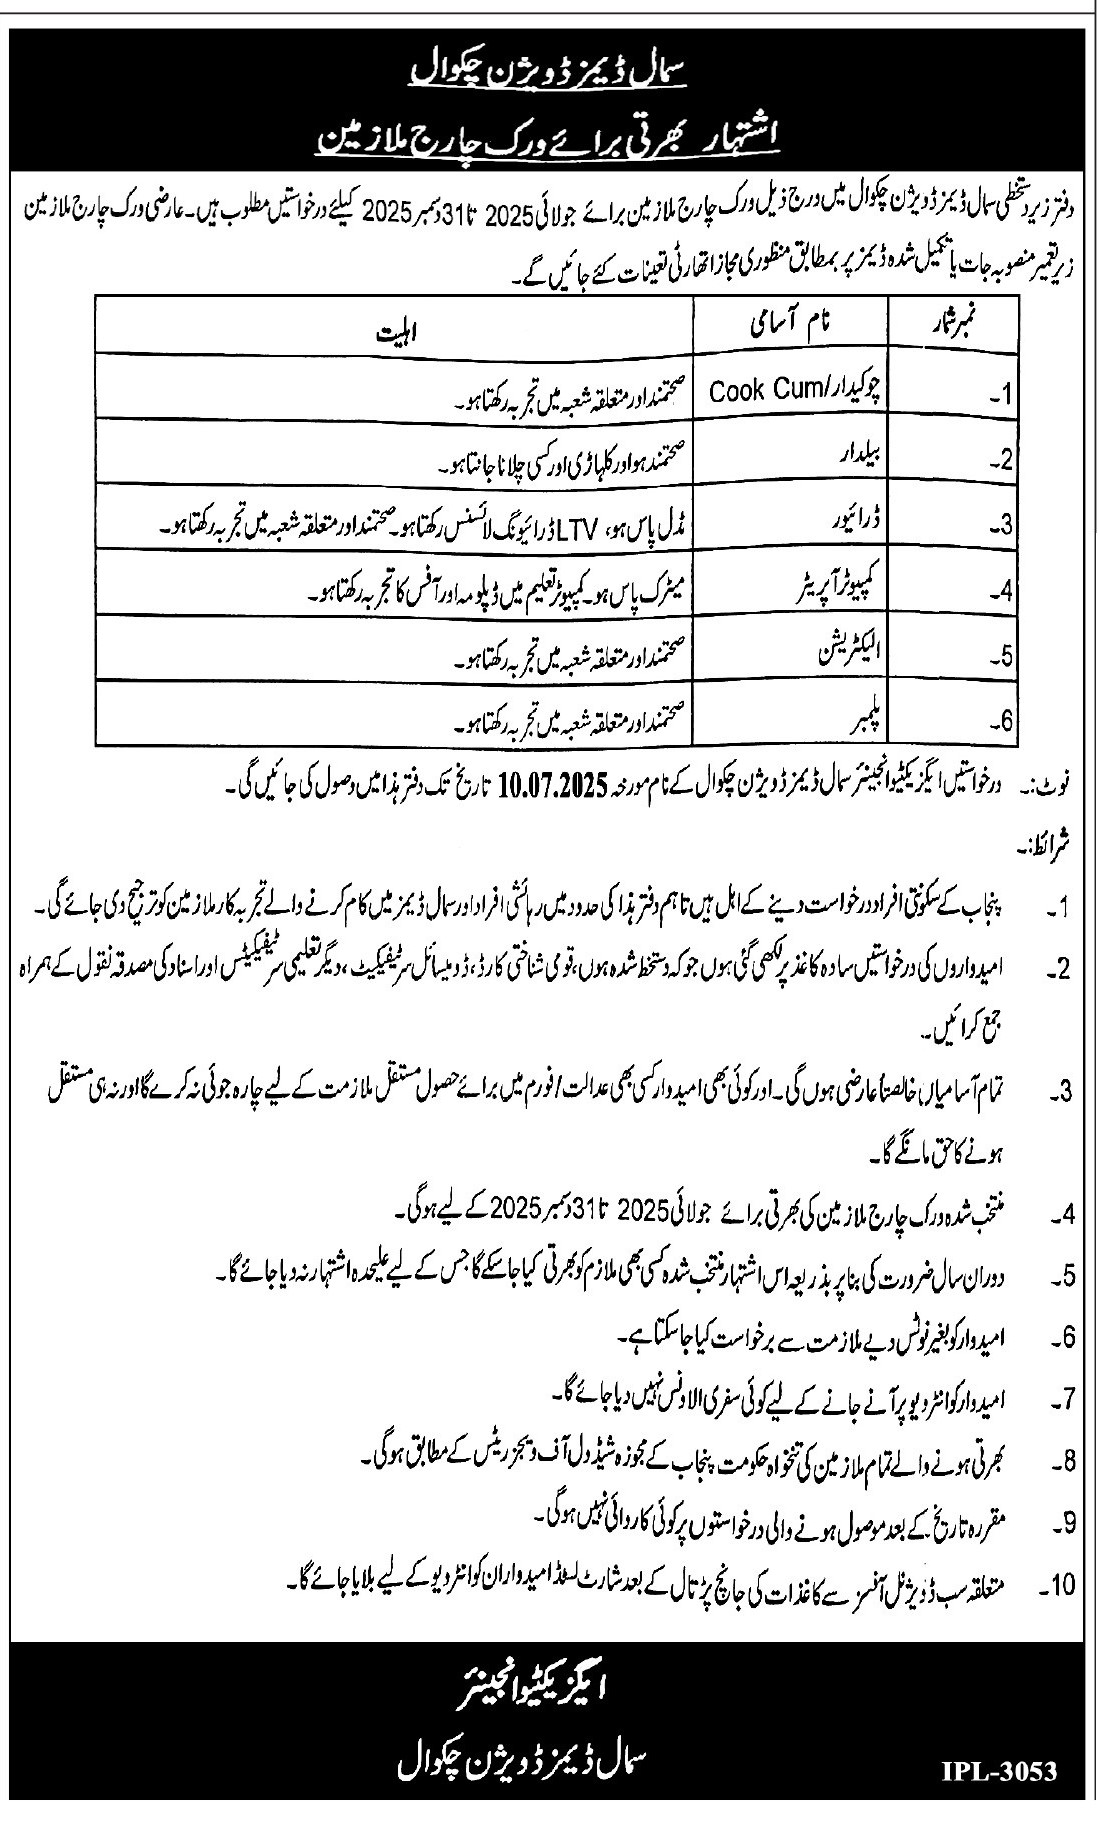 سمال ڈیمز ڈویژن چکوال
اشتہار بھرتی برائے ورک چارج ملازمین
دفتر زیر دستخطی سمال ڈیمز ڈویژن چکوال میں درج ذیل ورک چارج ملازمین برائے جولائی 2025 تا 31 دسمبر 2025 کیلئے درخواستیں مطلوب ہیں۔ عارضی ورک چارج ملازمین
زیر تعمیر منصوبہ جات یا تکمیل شدہ ڈیمز پر بمطابق منظوری مجاز اتھارٹی تعینات کئے جائیں گے۔
نمبر شمار نام آسامی اہلیت
1۔ چوکیدار/Cook Cum صحتمند اور متعلقہ شعبہ میں تجربہ رکھتا ہو۔
2۔ بیلدار صحتمند ہو اور کلہاڑی اور کسی چلانا جانتا ہو۔
3۔ ڈرائیور مڈل پاس ہو، LTV ڈرائیونگ لائسنس رکھتا ہو۔ صحتمند اور متعلقہ شعبہ میں تجربہ رکھتا ہو۔
4۔ کمپیوٹر آپریٹر میٹرک پاس ہو۔ کمپیوٹر تعلیم میں ڈپلومہ اور آفس کا تجربہ رکھتا ہو۔
5۔ الیکٹریشن صحتمند اور متعلقہ شعبہ میں تجربہ رکھتا ہو۔
6۔ پلمبر صحتمند اور متعلقہ شعبہ میں تجربہ رکھتا ہو۔
نوٹ:۔ درخواستیں ایگزیکٹیو انجینئر سمال ڈیمز ڈویژن چکوال کے نام مورخہ 10.07.2025 تاریخ تک دفتر ہذا میں وصول کی جائیں گی۔
شرائط:۔
1۔ پنجاب کے سکونتی افراد درخواست دینے کے اہل ہیں تاہم دفتر ہذا کی حدود میں رہائشی افراد اور سمال ڈیمز میں کام کرنے والے تجربہ کار ملازمین کو ترجیح دی جائے گی۔
2۔ امیدواروں کی درخواستیں سادہ کاغذ پر لکھی گئی ہوں جو کہ دستخط شدہ ہوں، قومی شناختی کارڈ، ڈومیسائل سرٹیفکیٹ، دیگر تعلیمی سرٹیفکیٹس اور اسناد کی مصدقہ نقول کے ہمراہ
جمع کرائیں۔
3۔ تمام آسامیاں خالصتاً عارضی ہوں گی۔ اور کوئی بھی امیدوار کسی بھی عدالت / فورم میں برائے حصول مستقل ملازمت کے لیے چارہ جوئی نہ کرے گا اور نہ ہی مستقل
ہونے کا حق مانگے گا۔
4۔ منتخب شدہ ورک چارج ملازمین کی بھرتی برائے جولائی 2025 تا 31 دسمبر 2025 کے لیے ہوگی۔
5۔ دوران سال ضرورت کی بنا پر بذریعہ اس اشتہار منتخب شدہ کسی بھی ملازم کو بھرتی کیا جا سکے گا جس کے لیے علیحدہ اشتہار نہ دیا جائے گا۔
6۔ امیدوار کو بغیر نوٹس دیے ملازمت سے برخواست کیا جا سکتا ہے۔
7۔ امیدوار کو انٹرویو پر آنے جانے کے لیے کوئی سفری الاؤنس نہیں دیا جائے گا۔
8۔ بھرتی ہونے والے تمام ملازمین کی تنخواہ حکومت پنجاب کے مجوزہ شیڈول آف ویجز ریٹس کے مطابق ہوگی۔
9۔ مقررہ تاریخ کے بعد موصول ہونے والی درخواستوں پر کوئی کاروائی نہیں ہوگی۔
10۔ متعلقہ سب ڈویژنل آفسز سے کاغذات کی جانچ پڑتال کے بعد شارٹ لسٹڈ امیدواران کو انٹرویو کے لیے بلایا جائے گا۔
ایگزیکٹیو انجینئر
سمال ڈیمز ڈویژن چکوال
IPL-3053